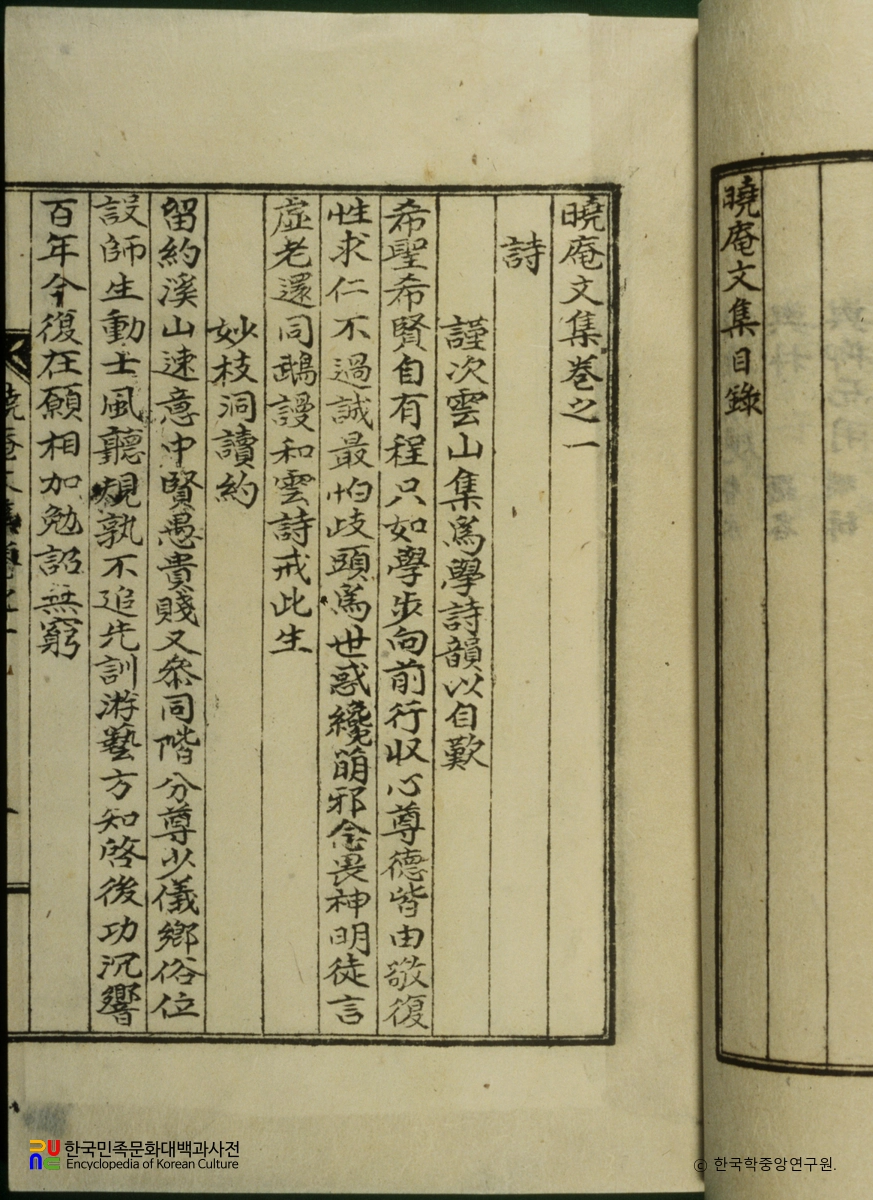 曉庵文集目錄
曉庵文集卷之一
詩
謹次雲山集爲學詩韻以自歎
希聖希賢自有程只如學步向前行収心尊德皆由敬復
性求仁不過誠最怕歧頭爲世惑纔萠邪念畏神明徒言
虛老還同鵡謾和雲詩戒此生
妙枝洞讀約
留約溪山速意中賢愚貴賤又叅同階分尊少儀鄕俗位
設師生動士風聽規孰不追先訓游藝方知啓後功沉響
百年今復在願相加勉詔無窮
한국민족문화대백과사전
Encyclopedia of Korean Culture
© 한국학중앙연구원.